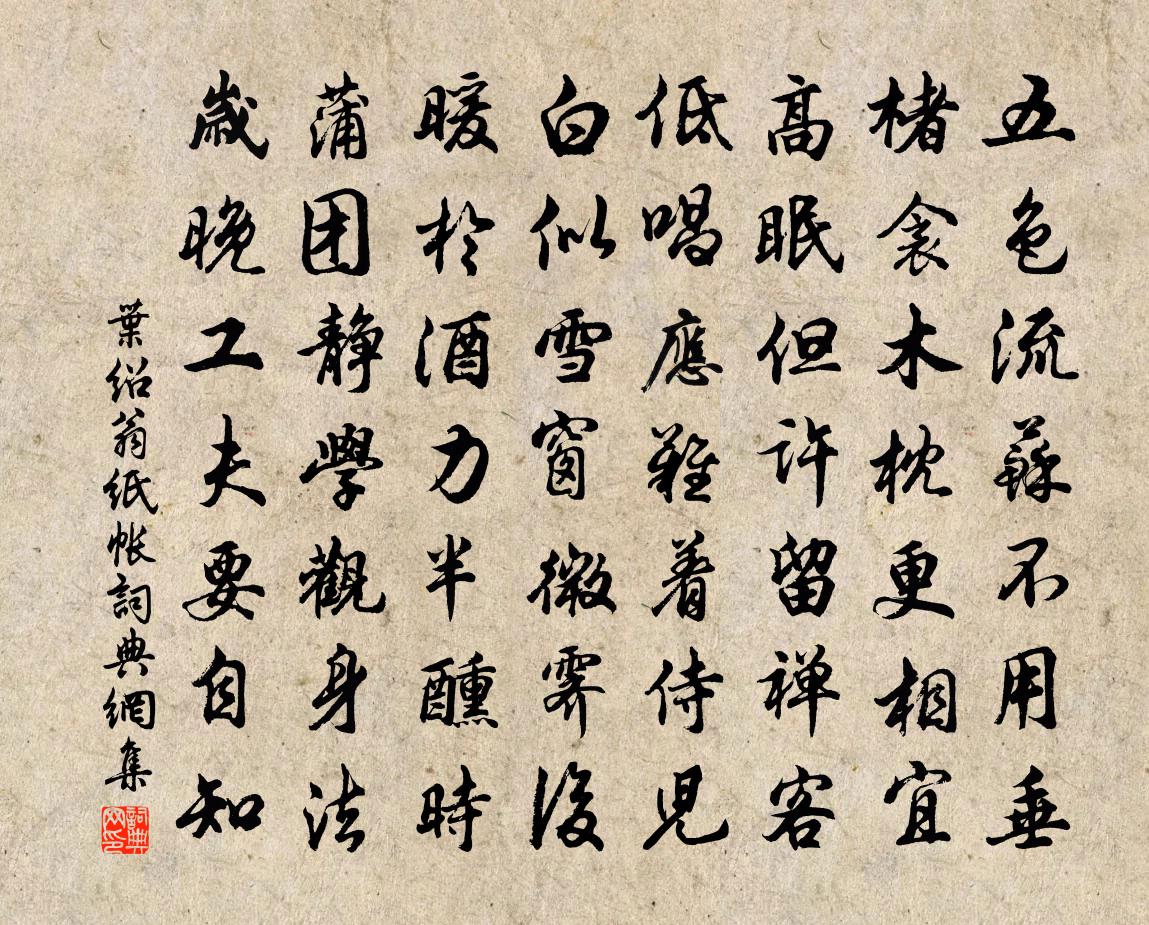 五色流蘇不用垂
楮衾木枕更相宜
高眠但许留禅客
低唱應難着侍児
白似雪窗微霽後
暖於酒力半醺時
蒲团静學觀身法
歲晚工夫要自知
葉紹翁紙帳詞典網集
詞典网印